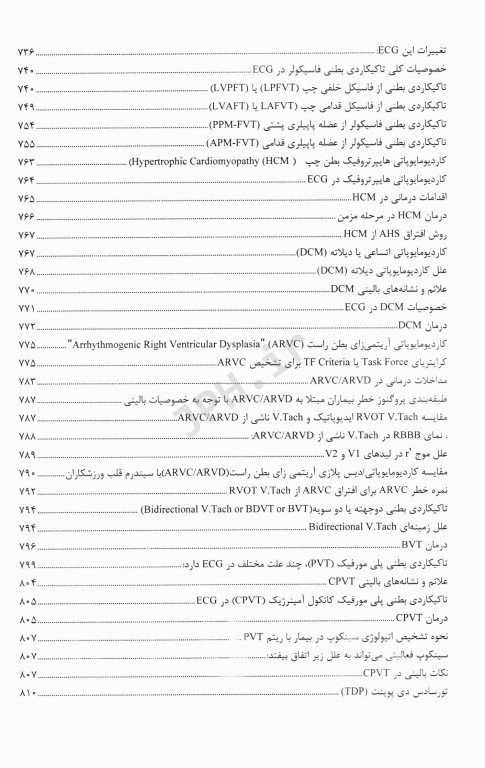 تغییرات این ECG: ........ ۷۳۶
خصوصیات کلی تاکیکاردی بطنی فاسیکولر در ECG ........ ۷۴۰
تاکیکاردی بطنی از فاسیکل خلفی چپ (LPFVT) یا (LVPFT) ........ ۷۴۰
تاکیکاردی بطنی از فاسیکل قدامی چپ (LAFVT) یا (LVAFT) ........ ۷۴۹
تاکیکاردی بطنی فاسیکولر از عضله پاپیلری پشتی (PPM-FVT) ........ ۷۵۴
تاکیکاردی بطنی فاسیکولر از عضله پاپیلری قدامی (APM-FVT) ........ ۷۵۵
کاردیومایوپاتی هایپرتروفیک بطن چپ ( Hypertrophic Cardiomyopathy (HCM) ........ ۷۶۳
کاردیومایوپاتی هایپرتروفیک در ECG ........ ۷۶۴
اقدامات درمانی در HCM ........ ۷۶۵
درمان HCM در مرحله مزمن ........ ۷۶۶
روش افتراق AHS از HCM ........ ۷۶۷
کاردیومایوپاتی اتساعی یا دیلاته (DCM) ........ ۷۶۷
علل کاردیومایوپاتی دیلاته (DCM) ........ ۷۶۸
علائم و نشانه‌های بالینی DCM ........ ۷۷۰
خصوصیات DCM در ECG ........ ۷۷۱
درمان DCM ........ ۷۷۲
کاردیومایوپاتی آریتمی‌زای بطن راست (ARVC) "Arrhythmogenic Right Ventricular Dysplasia" ........ ۷۷۵
کرایتریای Task Force یا TF Criteria برای تشخیص ARVC ........ ۷۷۵
مداخلات درمانی در ARVC/ARVD ........ ۷۸۳
طبقه‌بندی پروگنوز خطر بیماران مبتلا به ARVC/ARVD با توجه به خصوصیات بالینی ........ ۷۸۷
مقایسه RVOT V.Tach ایدیوپاتیک و V.Tach ناشی از ARVC/ARVD ........ ۷۸۷
. نمای RBBB در V.Tach ناشی از ARVC/ARVD: ........ ۷۸۸
علل موج r' در لیدهای V1 و V2 ........ ۷۸۹
مقایسه کاردیومایوپاتی/دیس پلازی آریتمی زای بطن راست(ARVC/ARVD)با سیندرم قلب ورزشکاران ........ ۷۹۰
نمره خطر ARVC برای افتراق ARVC از RVOT V.Tach ........ ۷۹۲
تاکیکاردی بطنی دوجهته یا دو سویه(Bidirectional V.Tach or BDVT or BVT) ........ ۷۹۴
علل زمینه‌ای Bidirectional V.Tach ........ ۷۹۴
درمان BVT ........ ۷۹۶
تاکیکاردی بطنی پلی مورفیک (PVT)، چند علت مختلف در ECG دارد: ........ ۷۹۹
علائم و نشانه‌های بالینی CPVT ........ ۸۰۴
تاکیکاردی بطنی پلی مورفیک کاتکول آمینرژیک (CPVT) در ECG ........ ۸۰۵
درمان CPVT ........ ۸۰۵
نحوه تشخیص اتیولوژی سینکوپ در بیمار با ریتم PVT ........ ۸۰۷
سینکوپ فعالیتی می‌تواند به علل زیر اتفاق بیفتد: ........ ۸۰۷
نکات بالینی در CPVT ........ ۸۰۷
تورسادس دی پوینت (TDP) ........ ۸۱۰
JPH.ir